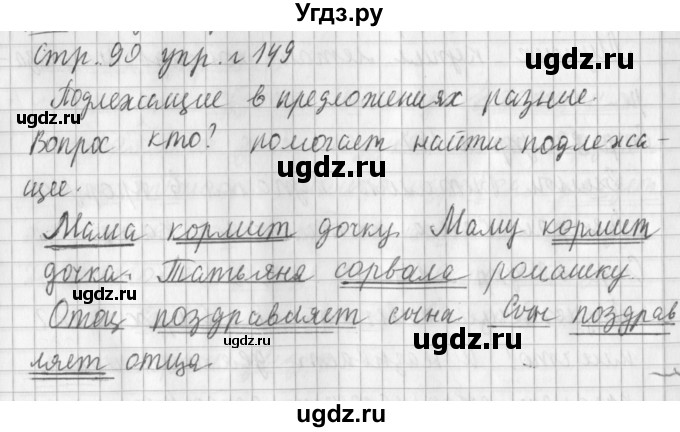 Угдз.ру
Стр. 90 упр. г 149
Подлежащие в предложениях разные.
Вопрос кто? помогает найти подлежа-
щее.
Мама кормит дочку. Маму кормит
дочка. Татьяна сорвала ромашку.
Отец поздравляет сына. Сын поздрав
ляет отца.
ugdz.ru
ugdz.ru
ugdz.ru
ugdz.ru
ugdz.ru
ugdz.ru
ugdz.ru
ugdz.ru
ugdz.ru
ugdz.ru